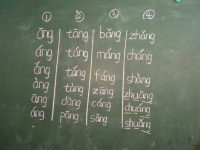 ① ② ③ ④
āng tāng bāng zhāng
áng táng máng cháng
ǎng tǎng fáng shàng
àng tàng zàng zhuāng
āng dāng cáng chuáng
áng pāng sāng shuāng